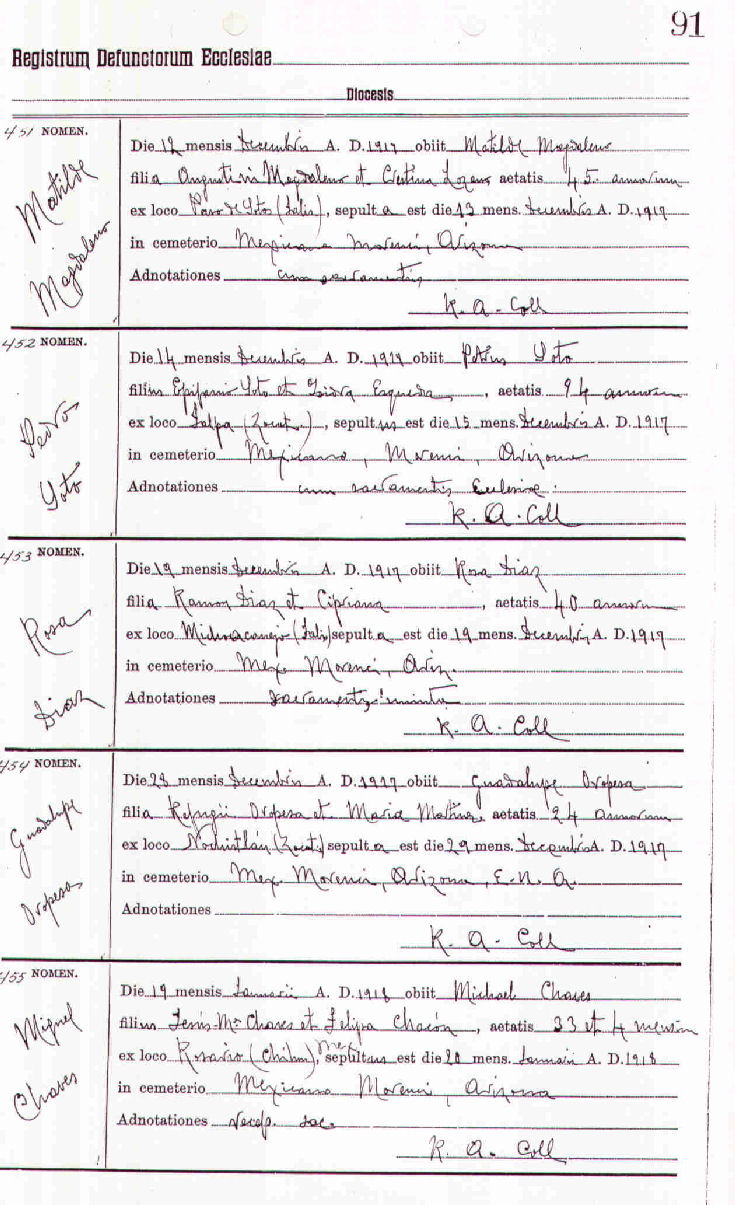 91
Registrum Defunctorum Ecclesiae
Diocesis
451 NOMEN.
Matilde Magdaleno
Die 12 mensis Decembris A. D. 1917 obiit Matilde Magdaleno
filia Augustini Magdaleno et Cristina Lozano aetatis 45 annorum
ex loco (Jalis), sepulta est die 13 mens. Decembris A. D. 1917
in cemeterio Mexicano Morenci, Arizona
Adnotationes cum sacramentis
R. A. Coll
452 NOMEN.
Pedro Soto
Die 14 mensis Decembris A. D. 1917 obiit Petrus Soto
filius Epifanio Soto et Isidra Esqueda, aetatis 94 annorum
ex loco Jalpa (Zacat.), sepultus est die 15 mens. Decembris A. D. 1917
in cemeterio Mexicano, Morenci, Arizona
Adnotationes cum sacramentis Ecclesiae.
R. A. Coll
453 NOMEN.
Rosa Diaz
Die 19 mensis Decembris A. D. 1917 obiit Rosa Diaz
filia Ramon Diaz et Cipriana, aetatis 40 annorum
ex loco (Jalis) sepulta est die 19 mens. Decembris A. D. 1917
in cemeterio Mex. Morenci, Ariz.
Adnotationes
R. A. Coll
454 NOMEN.
Guadalupe Oropesa
Die 28 mensis Decembris A. D. 1917 obiit Guadalupe Oropesa
filia Refugii Oropesa et Maria Martinez, aetatis 24 annorum
ex loco Nochistlán (Zacat.) sepulta est die 29 mens. Decembris A. D. 1917
in cemeterio Mex. Morenci, Arizona, E. N. A.
Adnotationes
R. A. Coll
455 NOMEN.
Miguel Chaves
Die 19 mensis Januarii A. D. 1918 obiit Michael Chaves
filius Jesús Ma Chaves et Felipa Chacón, aetatis 33 et 4 mensium
ex loco Rosario (Chihu.) Mex. sepultus est die 20 mens. Januarii A. D. 1918
in cemeterio Mexicano Morenci, Arizona
Adnotationes recep. sac.
R. A. Coll